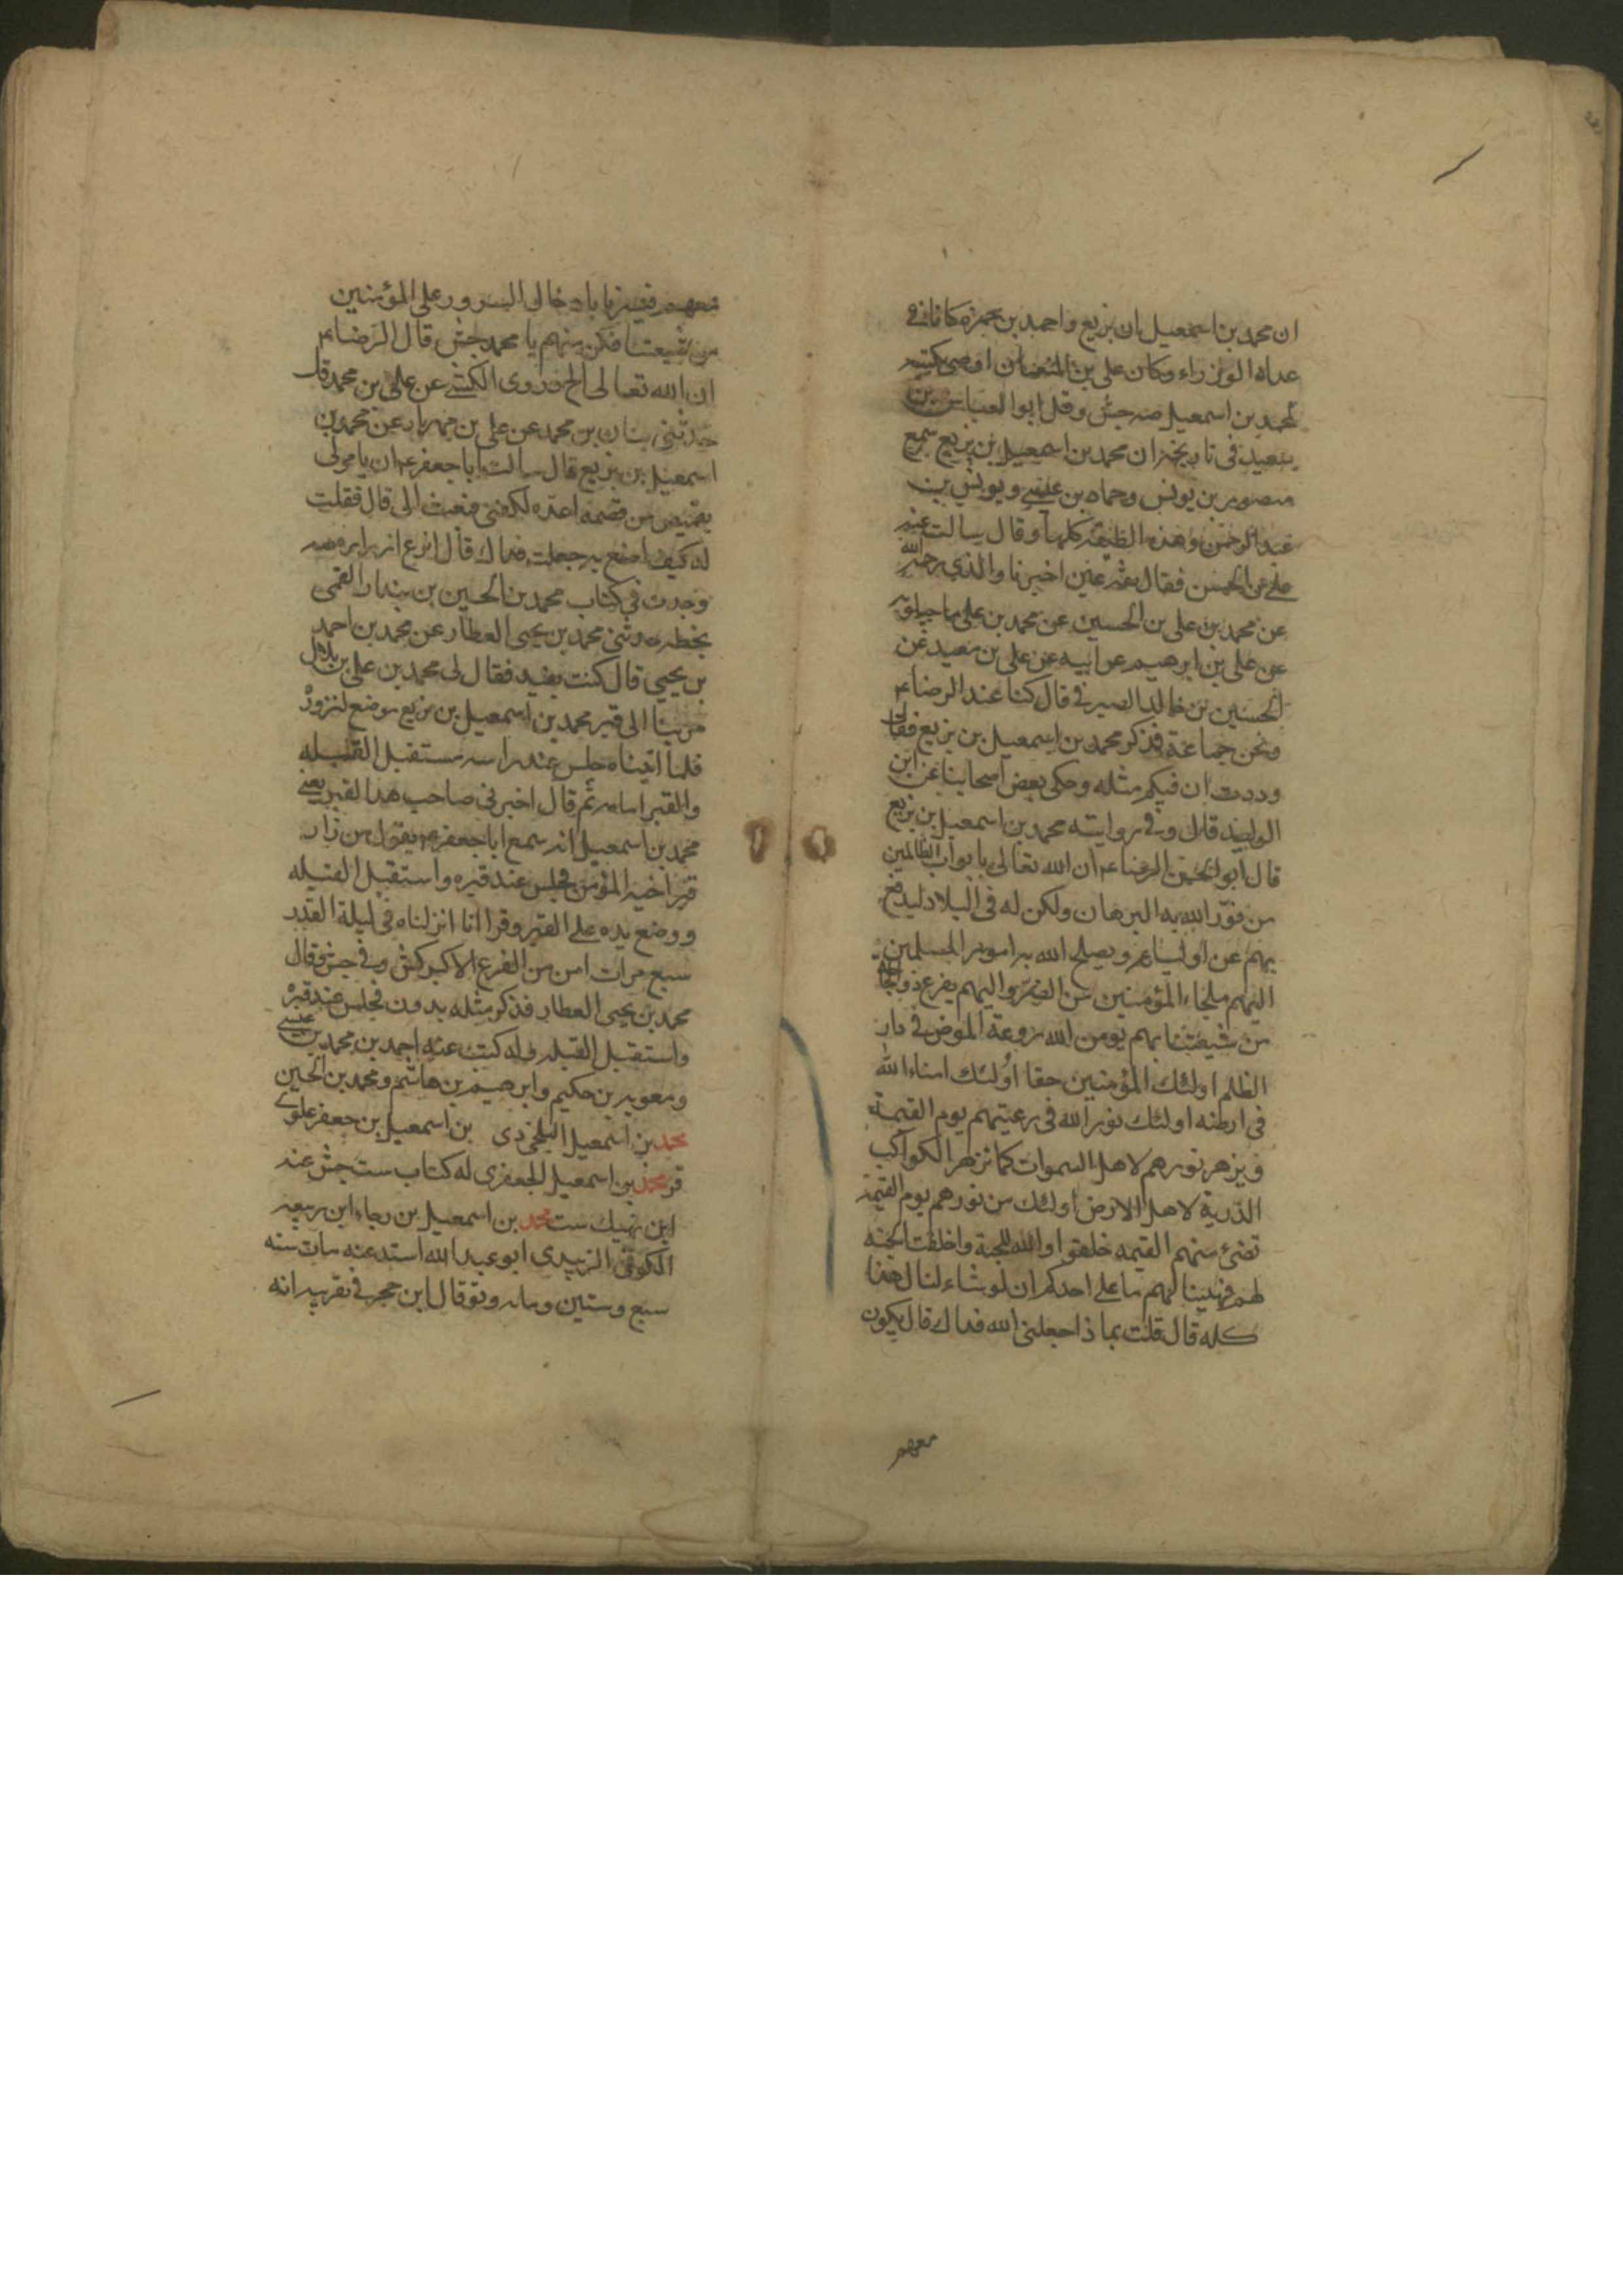 ان محمد بن اسمعيل ان بزيع واحمد بن حمزه كانا في
عداد الوزراء وكان علي بن النعمان اوصى بكتبه
لمحمد بن اسمعيل صه جش وقل ابو العباس بن
سعيد في تاريخه ان محمد بن اسمعيل بن بزيع سمع
منصور بن يونس وحماد بن عيسى ويونس بن
عبد الرحمن وهذه الطبقة كلها وقال سالت عنه
علي بن الحسن فقال ثقة عين اخبرنا والذي رحمه الله
عن محمد بن علي بن الحسين عن محمد بن علي ماجيلويه
عن علي بن ابرهيم عن ابيه عن علي بن معبد عن
الحسين بن خالد الصيرفي قال كنا عند الرضا ع
ونحن جماعة فذكر محمد بن اسمعيل بن بزيع فقال
وددت ان فيكم مثله وحكى بعض اصحابنا عن ابن
الوليد قال وفي رواية محمد بن اسمعيل بن بزيع
قال ابو الحسن الرضا ع ان الله تعالى بابواب الظالمين
من نور الله به البرهان ولكن له في البلاد ليدفع
بهم عن اوليائه ويصلح الله به امور المسلمين
اليهم ملجاء المؤمنين من الضر واليهم يفزع ذو الحاجة
من شيعتنا بهم يومن الله روعة المومن في دار
الظلم اولئك المؤمنين حقا اولئك امناء الله
في ارضه اولئك نور الله في رعيتهم يوم القيمة
ويزهر نورهم لاهل السموات كما تزهر الكواكب
الدرية لاهل الارض اولئك من نورهم يوم القيمة
تضئ منهم القيمه خلقوا والله للجنة واخلقت الجنه
لهم فهنيئا لهم ما على احدكم ان لو شاء لنال هذا
كله قال قلت بماذا جعلني الله فداك قال يكون
معهم
معهم فيسرنا بادخال السرور على المؤمنين
من شيعتنا فكن منهم يا محمد جش قال الرضا ع
ان الله تعالى الخ وروى الكشي عن علي بن محمد قال
حدثني بنان بن محمد عن علي بن مهزيار عن محمد بن
اسمعيل بن بزيع قال سالت ابا جعفر ع ان يامر لي
بقميص من قمصه اعده لكفني فبعث الي قال فقلت
له كيف اصنع به جعلت فداك قال انزع ازراره صه
وجدت في كتاب محمد بن الحسين بن بندار القمي
بخطه حدثني محمد بن يحيى العطار عن محمد بن احمد
بن يحيى قال كنت بفيد فقال لي محمد بن علي بن بلال
مر بنا الى قبر محمد بن اسمعيل بن بزيع لنزوره
فلما اتيناه جلس عند راسه مستقبل القبله
والقبر امامه ثم قال اخبرني صاحب هذا القبر يعني
محمد بن اسمعيل انه سمع ابا جعفر ع يقول من زار
قبر اخيه المؤمن فجلس عند قبره واستقبل القبله
ووضع يده على القبر وقرا انا انزلناه في ليلة القدر
سبع مرات امن من الفزع الاكبر كش وفي جش وقال
محمد بن يحيى العطار فذكر مثله بدون فجلس عند قبره
واستقبل القبله وله كتب عنه احمد بن محمد بن عيسى
ومعويه بن حكيم وابرهيم بن هاشم ومحمد بن الحسين
محمد بن اسمعيل البلخي دي بن اسمعيل بن جعفر علوي
قر محمد بن اسمعيل الجعفري له كتاب ست جش عنه
ابن نهيك ست محمد بن اسمعيل بن رجاء ابن ربيعه
الكوفي الزبيدي ابو عبد الله اسند عنه مات سنه
سبع وستين ومايه وقال ابن حجر في تقريبه انه